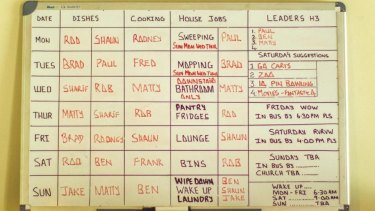 DATE DISHES COOKING HOUSE JOBS LEADERS H3
MON ROD SHAUN RODNEY SWEEPING PAUL
SUN MON WED THU
1. PAUL
2. BEN
3. MATTY
TUES BRAD PAUL FRED MOPPING BRAD
SUN MON WED THU
SATURDAY SUGGESTIONS
1 GO CARTS
2 ZOO
3 10 PIN BOWLING
4 MOVIES - FANTASTIC 4
WED SHARIF ROB MATTY DOWNSTAIRS
BATHROOM MATTY
ONLY
THUR MATTY SHARIF ROB PANTRY
FRIDGES ROD
FRIDAY WOW
IN BUS BY 6:30PM PLS
FRI BRAD RODNEY SHAUN LOUNGE SHAUN
SATURDAY
IN BUS BY 4:00PM PLS
SAT ROD BEN FRANK BINS ROB
SUNDAY TBA
IN BUS BY
CHURCH TBA
SUN JAKE MATTY BEN WIPE DOWN BEN
WAKE UP SHAUN
LAUNDRY JAKE
WAKE UP
MON - FRI 6:30AM
SAT 9:00AM
SUN TBA